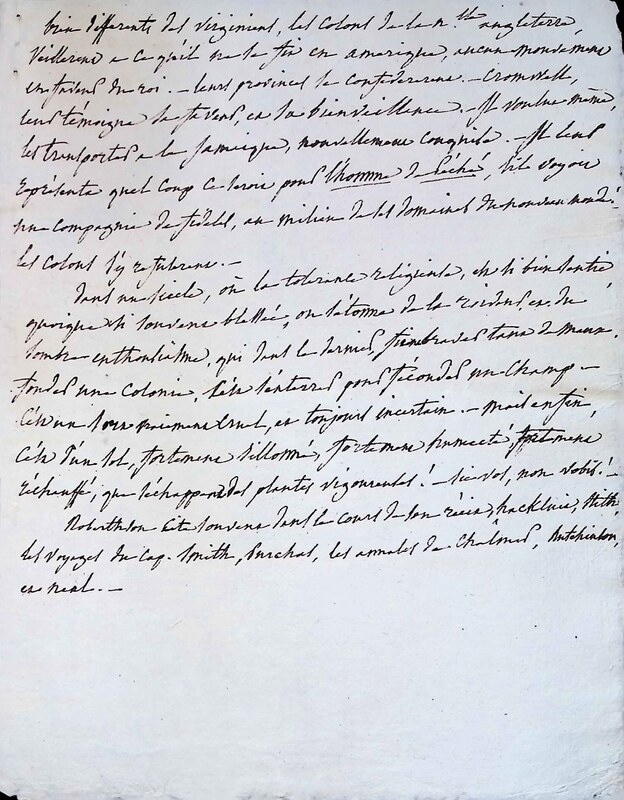 bien differents des virginiens, les colons de la n.lle angleterre,
veillerent a ce qu'il ne se fit en amerique, aucun mouvement
en faveur du roi. — leurs provinces se confédérerent. — Cromwell,
leur témoigna sa faveur, et sa bienveillence. — Il voulut même,
les transporter a la Jamaïque, nouvellement conquise. — Il leur
représenta quel coup ce seroit pour l'homme de péché, s'il voyoit
une compagnie de fideles, au milieu de ses domaines du nouveau monde!
les colons s'y refuserent. —
Dans un siecle, où la tolerance religieuse, est si bien sentie
quoique si souvent blessée, on s'étonne de la roideur, et du
sombre enthousiasme, qui dans le dernier, fit braver tant de maux.
fonder une colonie, c'est s'enterrer pour féconder un champ —
C'est un sort vraiment cruel, et toujours incertain. — mais enfin,
c'est d'un sol, fortement sillonné, fortement humecté, fortement
réchauffé, que s'échappent des plantes vigoureuses! — sic vos, non vobis! —
Roberthson cite souvent dans le cours de son récit, hackluit, Stith,
les voyages du cap. Smith, Purchas, les annales de Chalmers, Hutchinson,
et neal. —